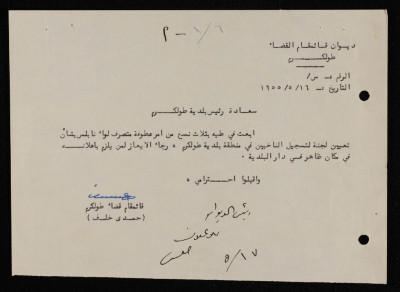 ٢ - ١/٦
ديوان قائمقام القضاء
طولكرم
الرقم د. س/
التاريخ د. ١٩٥٥/٥/١٦
سعادة رئيس بلدية طولكرم
ابعث في طيه بثلاث نسخ من امر عطوفة متصرف لواء نابلس بشأن
تعيين لجنة لتسجيل الناخبين في منطقة بلدية طولكرم ، رجاء الايعاز لمن يلزم باعلانه
في مكان ظاهر في دار البلدية .
واقبلوا احترامي ،
قائمقام قضاء طولكرم
(حمدي خلف)
رئيس الديوان
٥/١٧